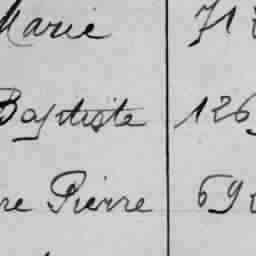 Marie 71
Baptiste 126
re Pierre 69